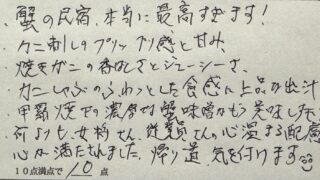 蟹の民宿、本当に最高すぎます！
・カニ刺しのプリップリ感と甘み、
焼きガニの香ばしさとジューシーさ、
カニしゃぶのふわっとした食感に上品な出汁
甲羅焼きの濃厚な蟹味噌がもう美味した、
何よりも、女将さん、従業員さんの心温まる配慮
心が満たされました。帰り道 気を付けます
10点満点で 10 点